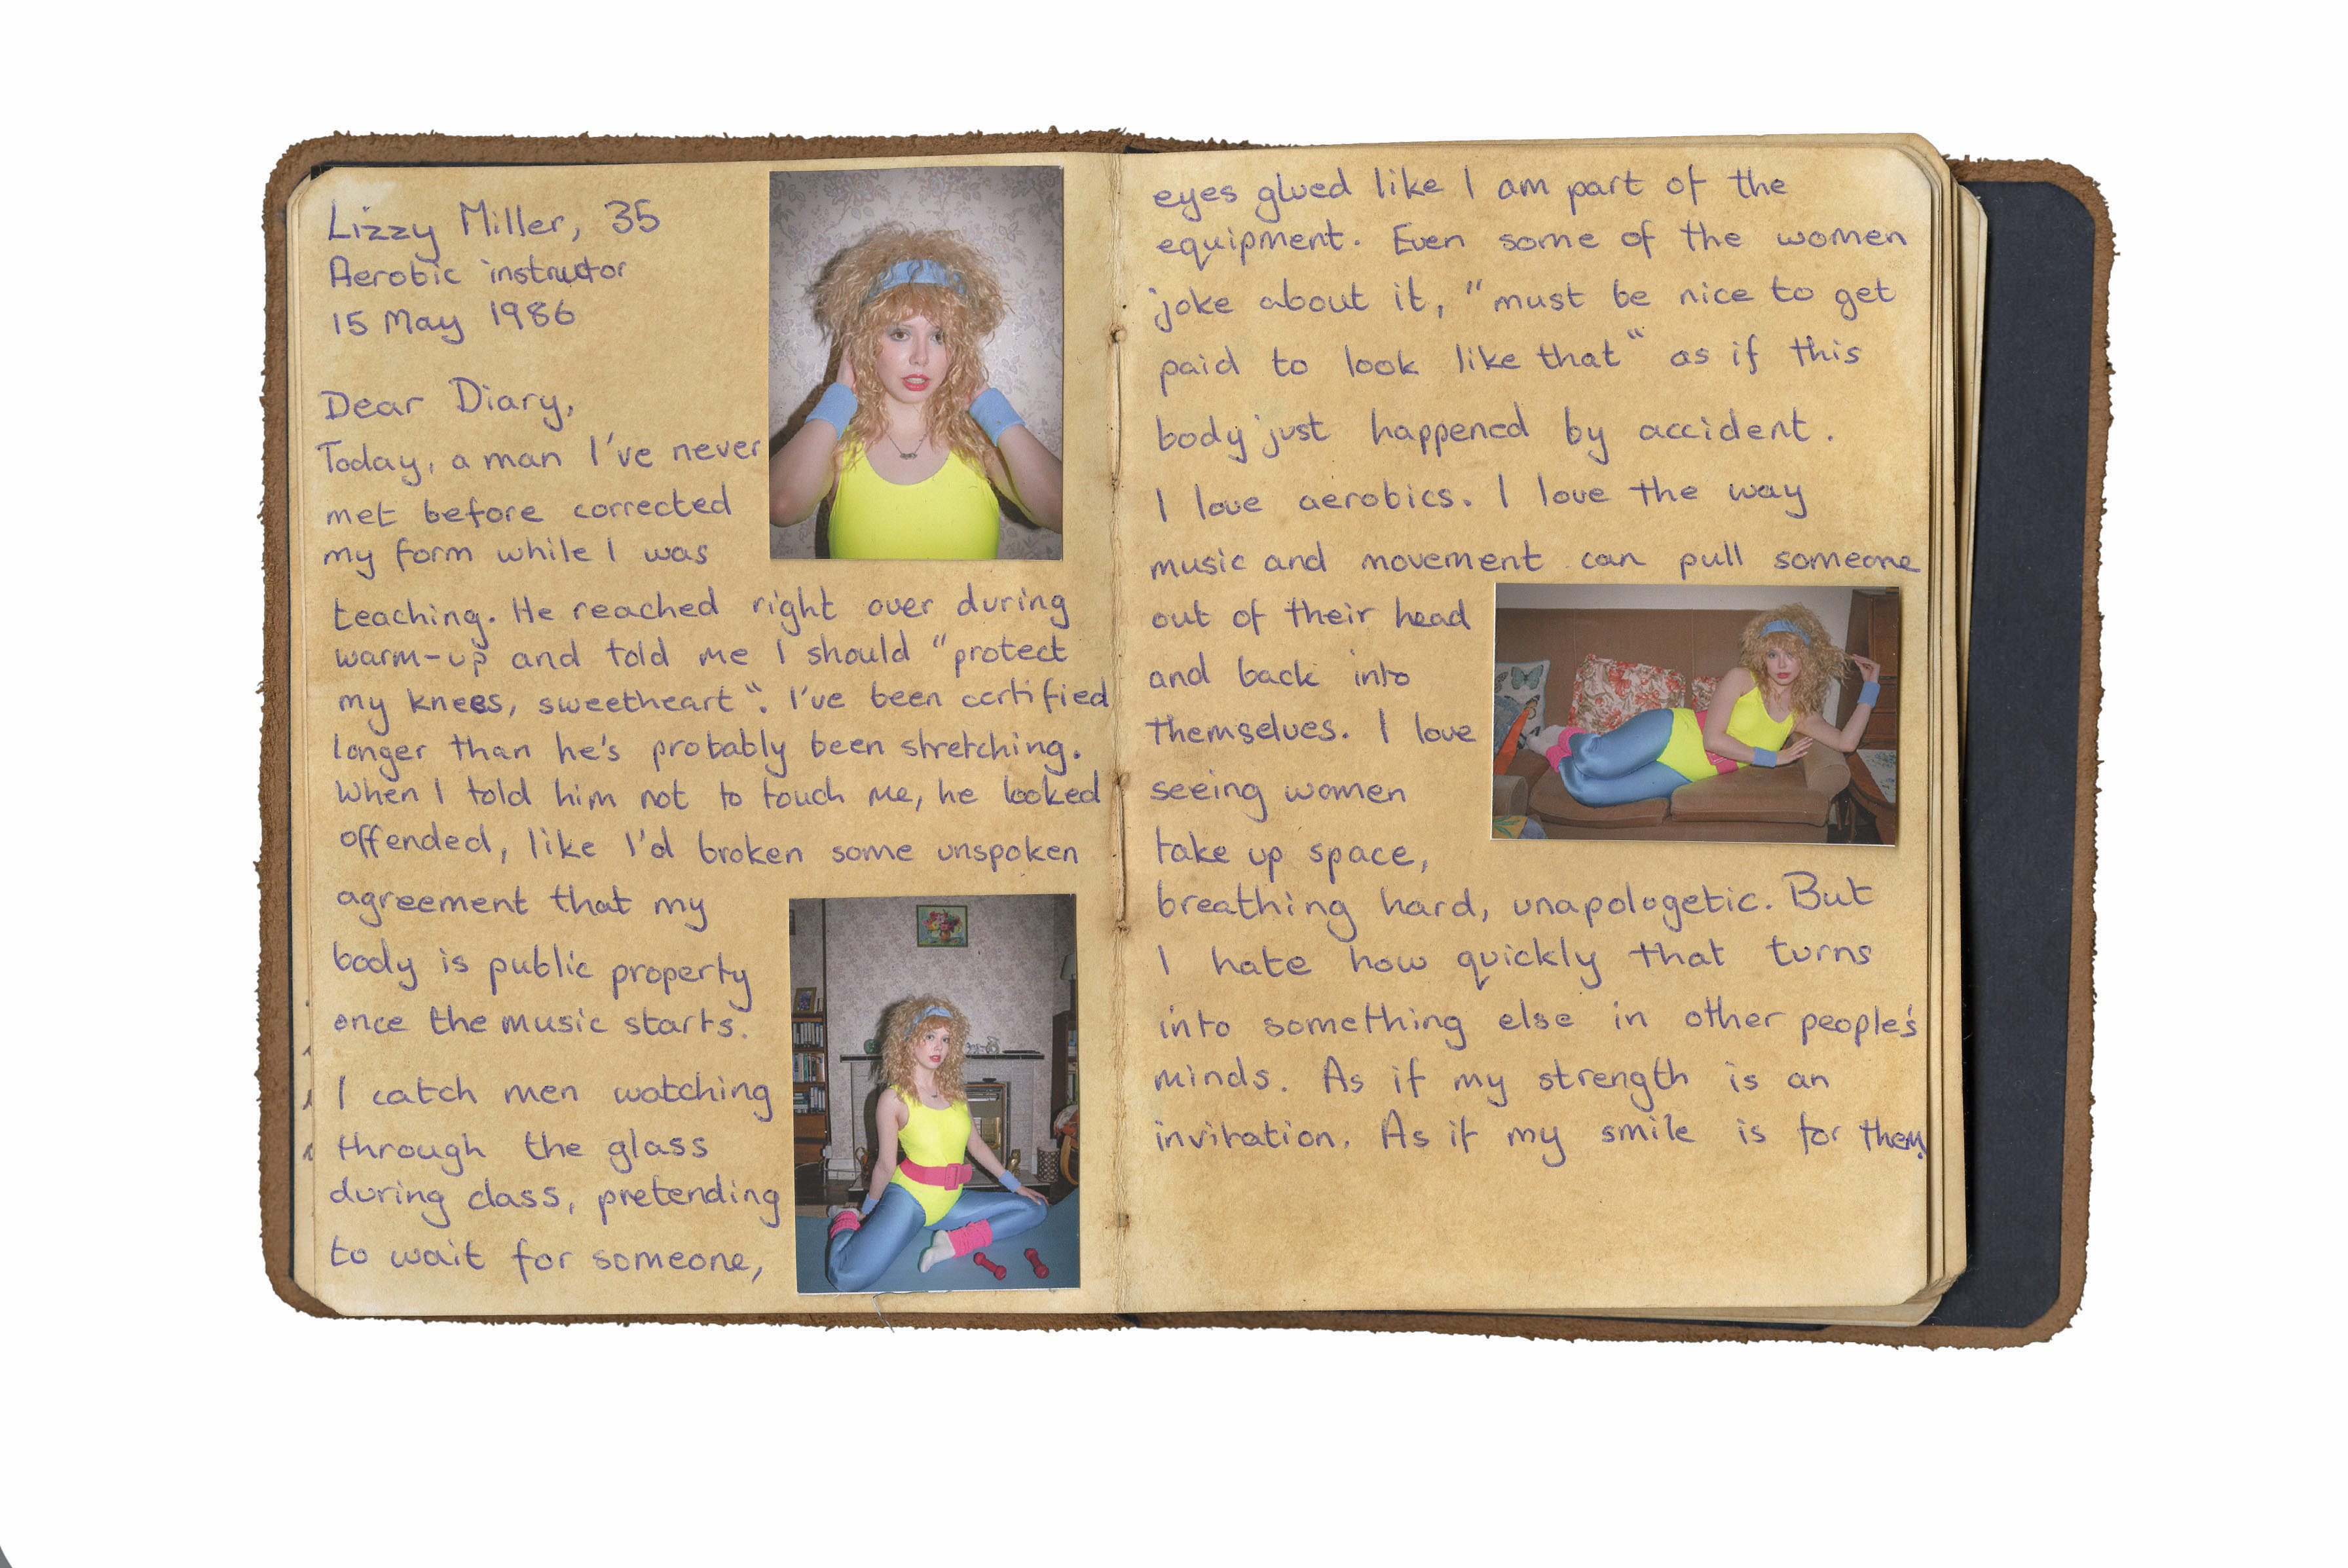 Lizzy Miller, 35
Aerobic instructor
15 May 1986
Dear Diary,
Today, a man I've never
met before corrected
my form while I was
teaching. He reached right over during
warm-up and told me I should "protect
my knees, sweetheart". I've been certified
longer than he's probably been stretching.
When I told him not to touch me, he looked
offended, like I'd broken some unspoken
agreement that my
body is public property
once the music starts.
I catch men watching
through the glass
during class, pretending
to wait for someone,
eyes glued like I am part of the
equipment. Even some of the women
joke about it, "must be nice to get
paid to look like that" as if this
body just happened by accident.
I love aerobics. I love the way
music and movement can pull someone
out of their head
and back into
themselves. I love
seeing women
take up space,
breathing hard, unapologetic. But
I hate how quickly that turns
into something else in other people's
minds. As if my strength is an
invitation. As if my smile is for them.